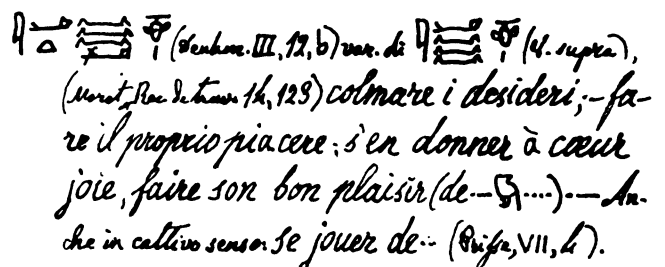 (Denkm. III, 12, b) var. di (V. supra),
(Moret, Rec. de trav. 14, 123) colmare i desideri; - fa-
re il proprio piacere: s'en donner à cœur
joie, faire son bon plaisir (de - ....). — An-
che in cattivo senso: se jouer de.. (Prisse, VII, 4).